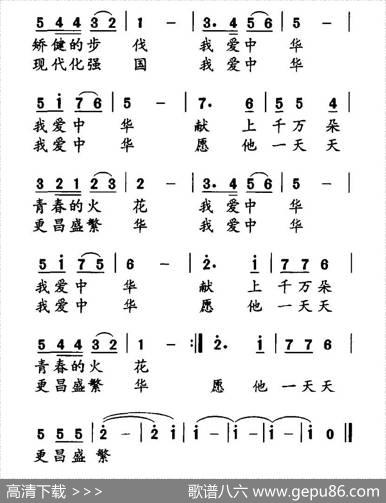 5 4 4 3 2 | 1 - | 3. 4 5 6 | 5 - |
矫健的步 伐 我爱中 华
现代化强 国 我爱中 华
5 i 7 6 | 5 - | 7. 6 | 5 5 4 |
我爱中 华 献 上 千万朵
我爱中 华 愿 他 一天天
3 2 1 2 3 | 2 - | 3. 4 5 6 | 5 - |
青春的火 花 我爱中 华
更昌盛繁 华 我爱中 华
5 i 7 5 | 6 - | 2. i | 7 7 6 |
我爱中 华 献 上 千万朵
我爱中 华 愿 他 一天天
5 4 4 3 2 | 1 - :| 2. i | 7 7 6 |
青春的火 花
更昌盛繁 华 愿 他 一天天
5 5 5 | 2 - | 2 i | i - | i - | i - | i 0 ‖
更昌盛繁
高清下载 >>> 歌谱八六 www.gepu86.com